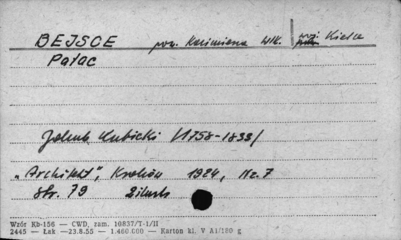 BEJSCE pow. Kazimierza Wlk. woj. Kielce
Pałac
Jakub Kubicki /1758-1833/
„Architekt", Kraków 1924, Nr. 7
str. 79 2 ilustr.
Wzór Kb-156 — CWD, zam. 10837/T-1/II
2445 — Łak —23.8.55 — 1.460.000 — Karton kl. V A1/180 g